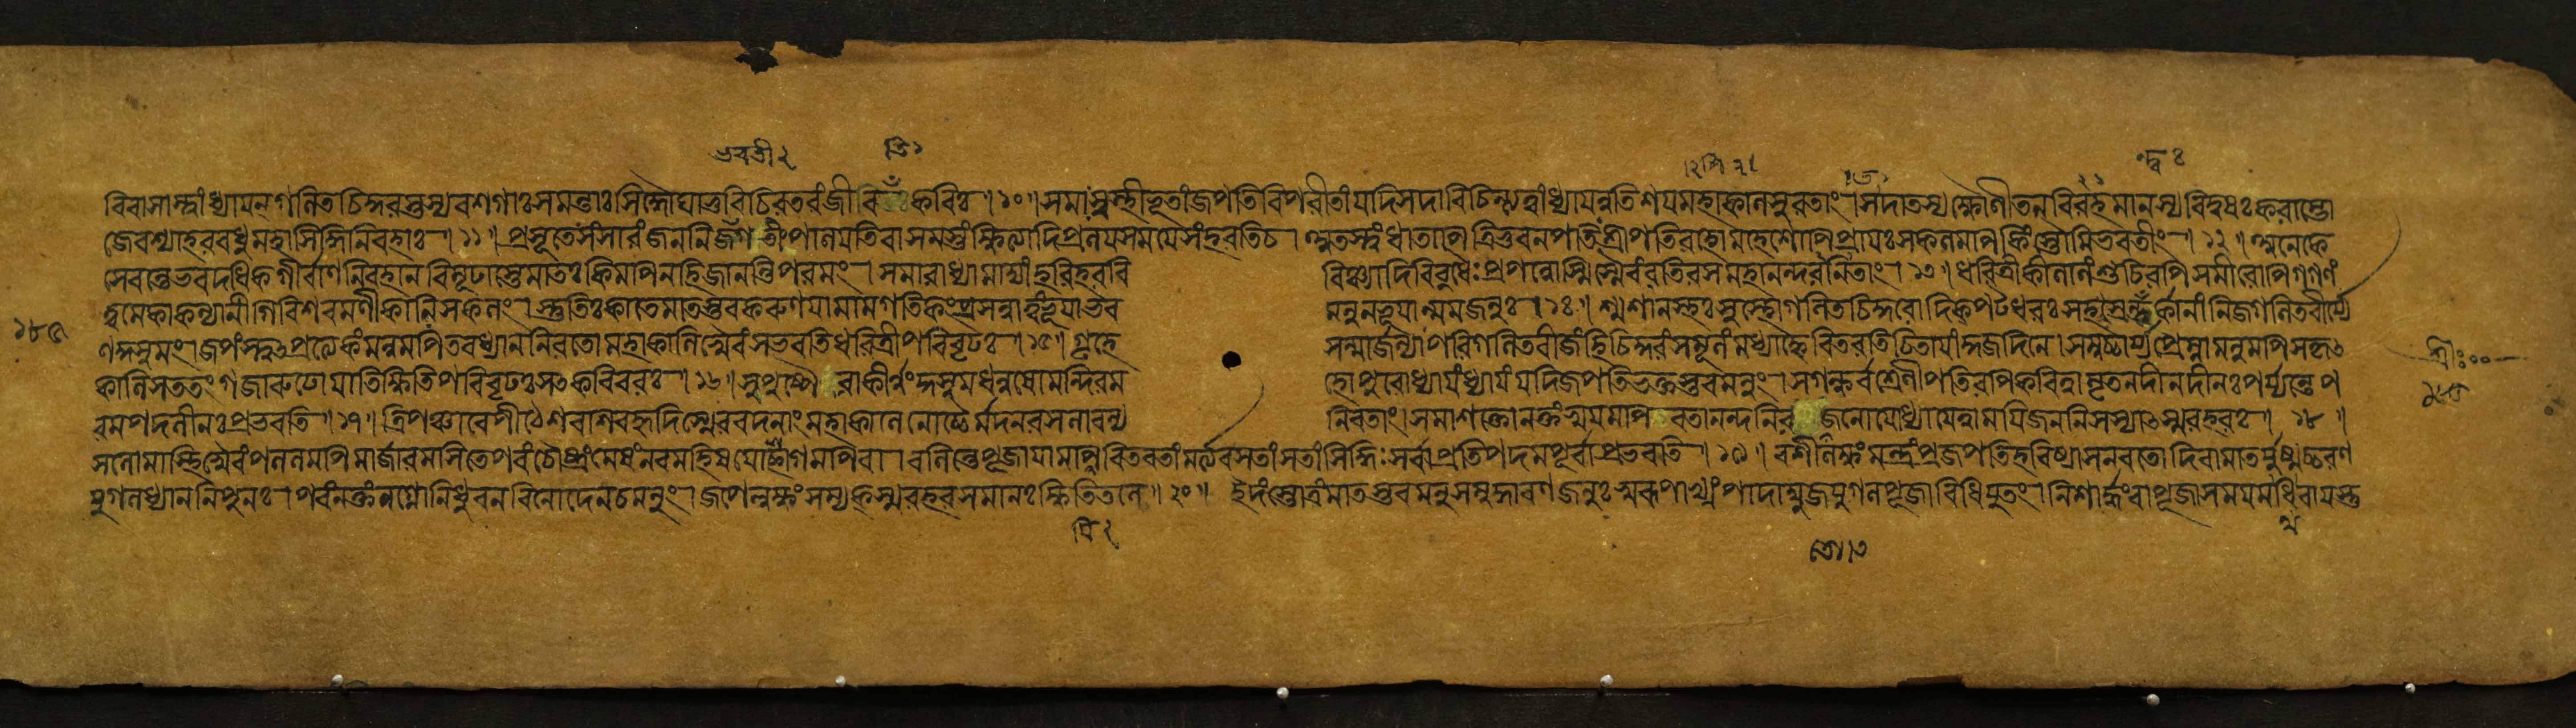 ভবতী২ তি১ ।২পি২। ।তে১ ২১ ন্দ্বঃ
বিবাসাস্ত্বাংধ্যায়ন্গলিতচিকুরস্তস্যবশগাঃসমস্তাঃসিদ্ধোঘাভুবিচিরতরংজীবতিকবিঃ।১০।সমাংসুস্থীভূতাংজপতিবিপরীতাংযদিসদাবিচিন্ত্যত্বাংধ্যায়ন্নতিশয়মহাকালসুরতাং।সদাতস্যক্ষৌণীতলবিরহমানস্যবিদুষঃকরাম্ভো
জেবশ্যাহরবধুমহাসিদ্ধিনিবহাঃ।১১।প্রসূতেসংসারংজননিজগতীংপালয়তিবাসমস্তংক্ষিত্যাদিপ্রলয়সময়েসংহরতিচ।অতস্ত্বংধাতাপিত্রিভুবনপতিঃশ্রীপতিরহোমহেশোপিপ্রায়ঃসকলমপিকিংস্তৌমিভবতীং।১২।অনেকে
সেবন্তেভবদধিকগীর্বাণনিবহানবিমূঢাস্তেমাতঃকিমপিনহিজানন্তিপরমং।সমারাধ্যামাদ্যাংহরিহরবিরিঞ্চ্যাদিবিবুধৈঃপ্রপন্নোস্মিস্বৈরংরতিরসমহানন্দনিরতাং।১৩।ধরিত্রীকীলালংশুচিরপিসমীরোপিগগণং
ত্বমেকাকল্যানীগিরিশরমণীকালিসকলং।স্তুতিঃকাতেমাতস্তবকরুণয়ামামগতিকংপ্রসন্নাত্বংভূয়াভবমনুনভূয়ান্মমজনুঃ।১৪।শ্মশানস্থঃসুস্থোগলিতচিকুরোদিক্পটধরঃসহস্রন্ত্বর্কানাংনিজগলিতবীর্য্যে
১৮৯ ণকুসুমং।জপংস্ত্বৎপ্রত্যেকংমনুমপিতবধ্যাননিরতোমহাকালিস্বৈরংসভবতিধরিত্রীপরিবৃঢঃ।১৫।গৃহেসম্মার্জন্যাপরিগলিতবীজংহিচিকুরংসমূলংমধ্যাহ্নেবিতরতিচিতায়াংকুজদিনে।সমুচ্চার্য্যপ্রেম্নামনুমপিসকৃৎ
কালিসততংগজারুঢোযাতিক্ষিতিপপরিবৃঢঃসৎকবিবরঃ।১৬।সুপুষ্পৈরাকীর্ন্নংকুসুমধনুষোমন্দিরমহোপুরোধ্যায়ংধ্যায়ংযদিজপতিভক্তস্তবমনুং।সগন্ধর্বশ্রেণীপতিরপিকবিত্বামৃতনদীনদীনঃপর্য্যন্তেপ
রমপদলীনঃপ্রভবতি।১৭।ত্রিপঞ্চারেপীঠেশবশিবহৃদিস্মেরবদনাংমহাকালেনোচ্চৈর্মদনরসলাবন্যনিরতাং।সমাশক্তোনক্তংস্বয়মপিরতানন্দনির জনোযোধ্যায়েত্ত্বাময়িজননিসস্যাৎস্মরহরঃ।১৮।
সলোমাস্থিস্বৈরংপললমপিমার্জারমসিতেপরংচৌষ্ট্রংমেষংনরমহিষয়োচ্ছাগমপিবা।বলিন্তেপূজায়ামপিবিতরতাংমর্ত্যবসতাংসতাংসিদ্ধিঃসর্বাপ্রতিপদমপূর্বাপ্রভবতি।১৯।বশীলক্ষংমন্ত্রংপ্রজপতিহবিষ্যাসনরতোদিবামাতর্যুষ্মচ্চরণ
যুগলধ্যাননিপুনঃ।পরংনক্তংনগ্নোনিধুবনবিনোদেনচমনুং।জপেল্লক্ষংসম্যক্স্মরহরসমানঃক্ষিতিতলে॥২০॥ইদংস্তোত্রংমাতস্তবমনুসমুদ্ধারণজনুঃস্বরূপাখ্যংপাদাম্বুজযুগলপূজাবিধিযুতং।নিশার্দ্ধংবাপূজাসময়মধিবাযস্তু